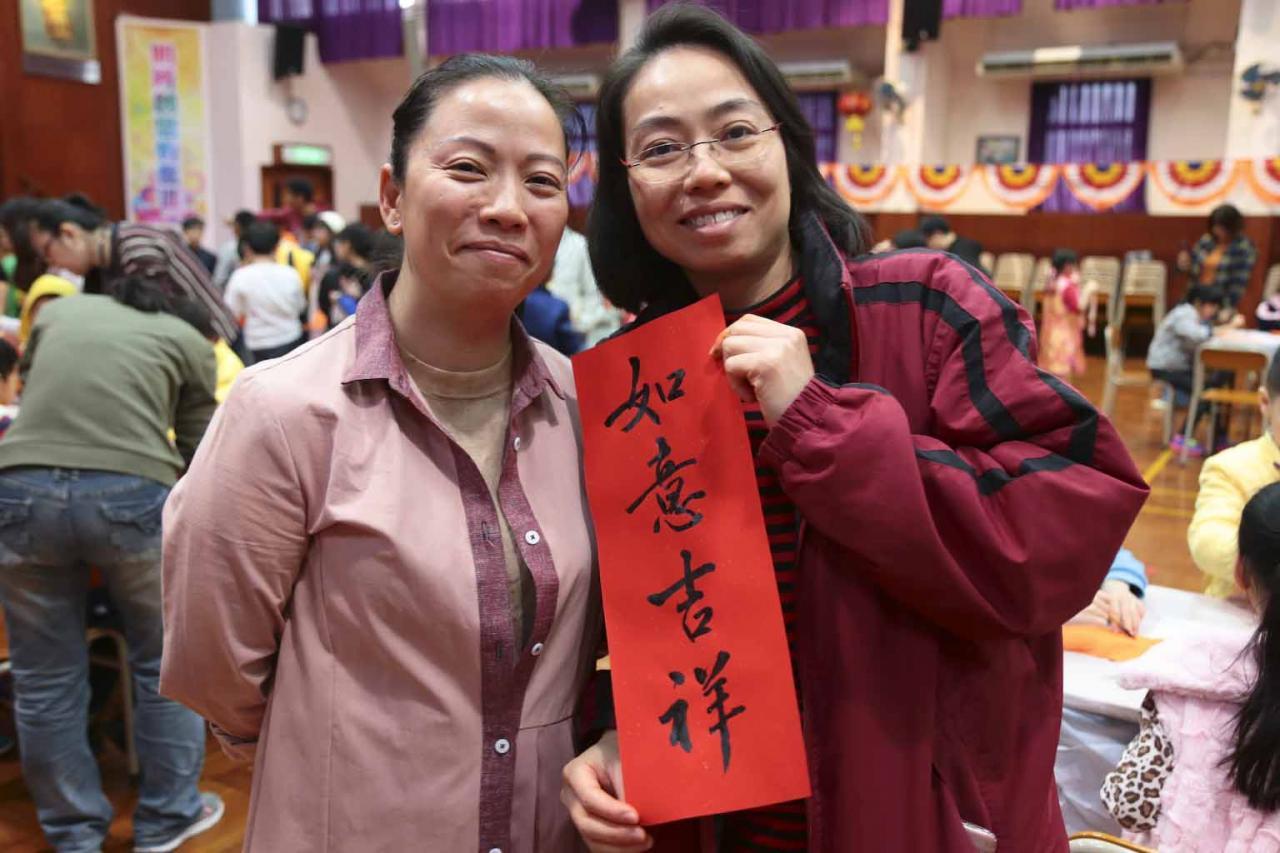 如意吉祥